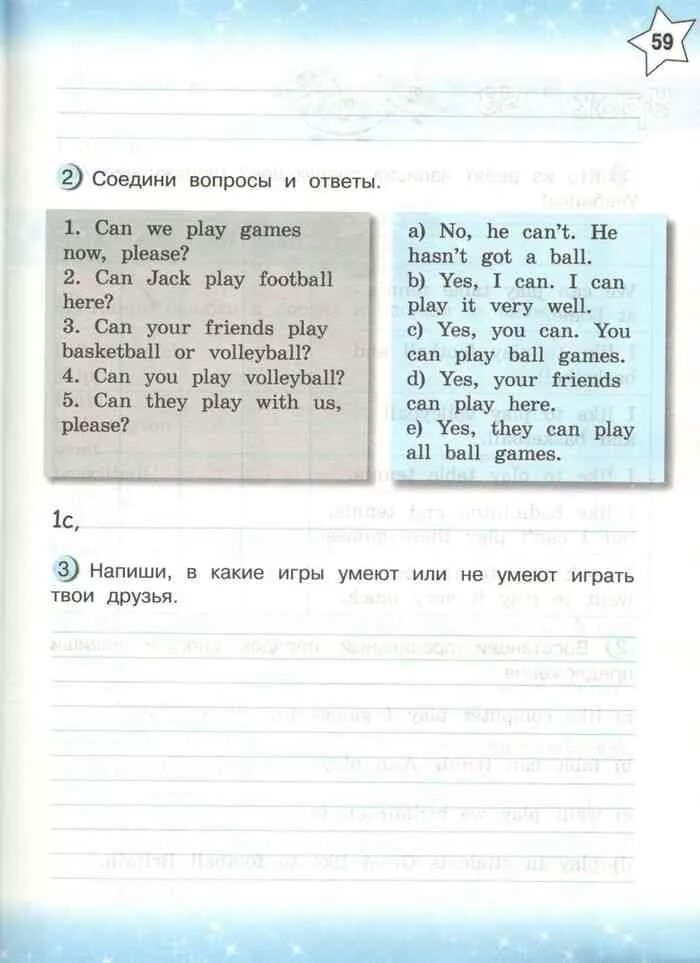 59
2) Соедини вопросы и ответы.
1. Can we play games
now, please?
2. Can Jack play football
here?
3. Can your friends play
basketball or volleyball?
4. Can you play volleyball?
5. Can they play with us,
please?
a) No, he can't. He
hasn't got a ball.
b) Yes, I can. I can
play it very well.
c) Yes, you can. You
can play ball games.
d) Yes, your friends
can play here.
e) Yes, they can play
all ball games.
1c,
3) Напиши, в какие игры умеют или не умеют играть
твои друзья.